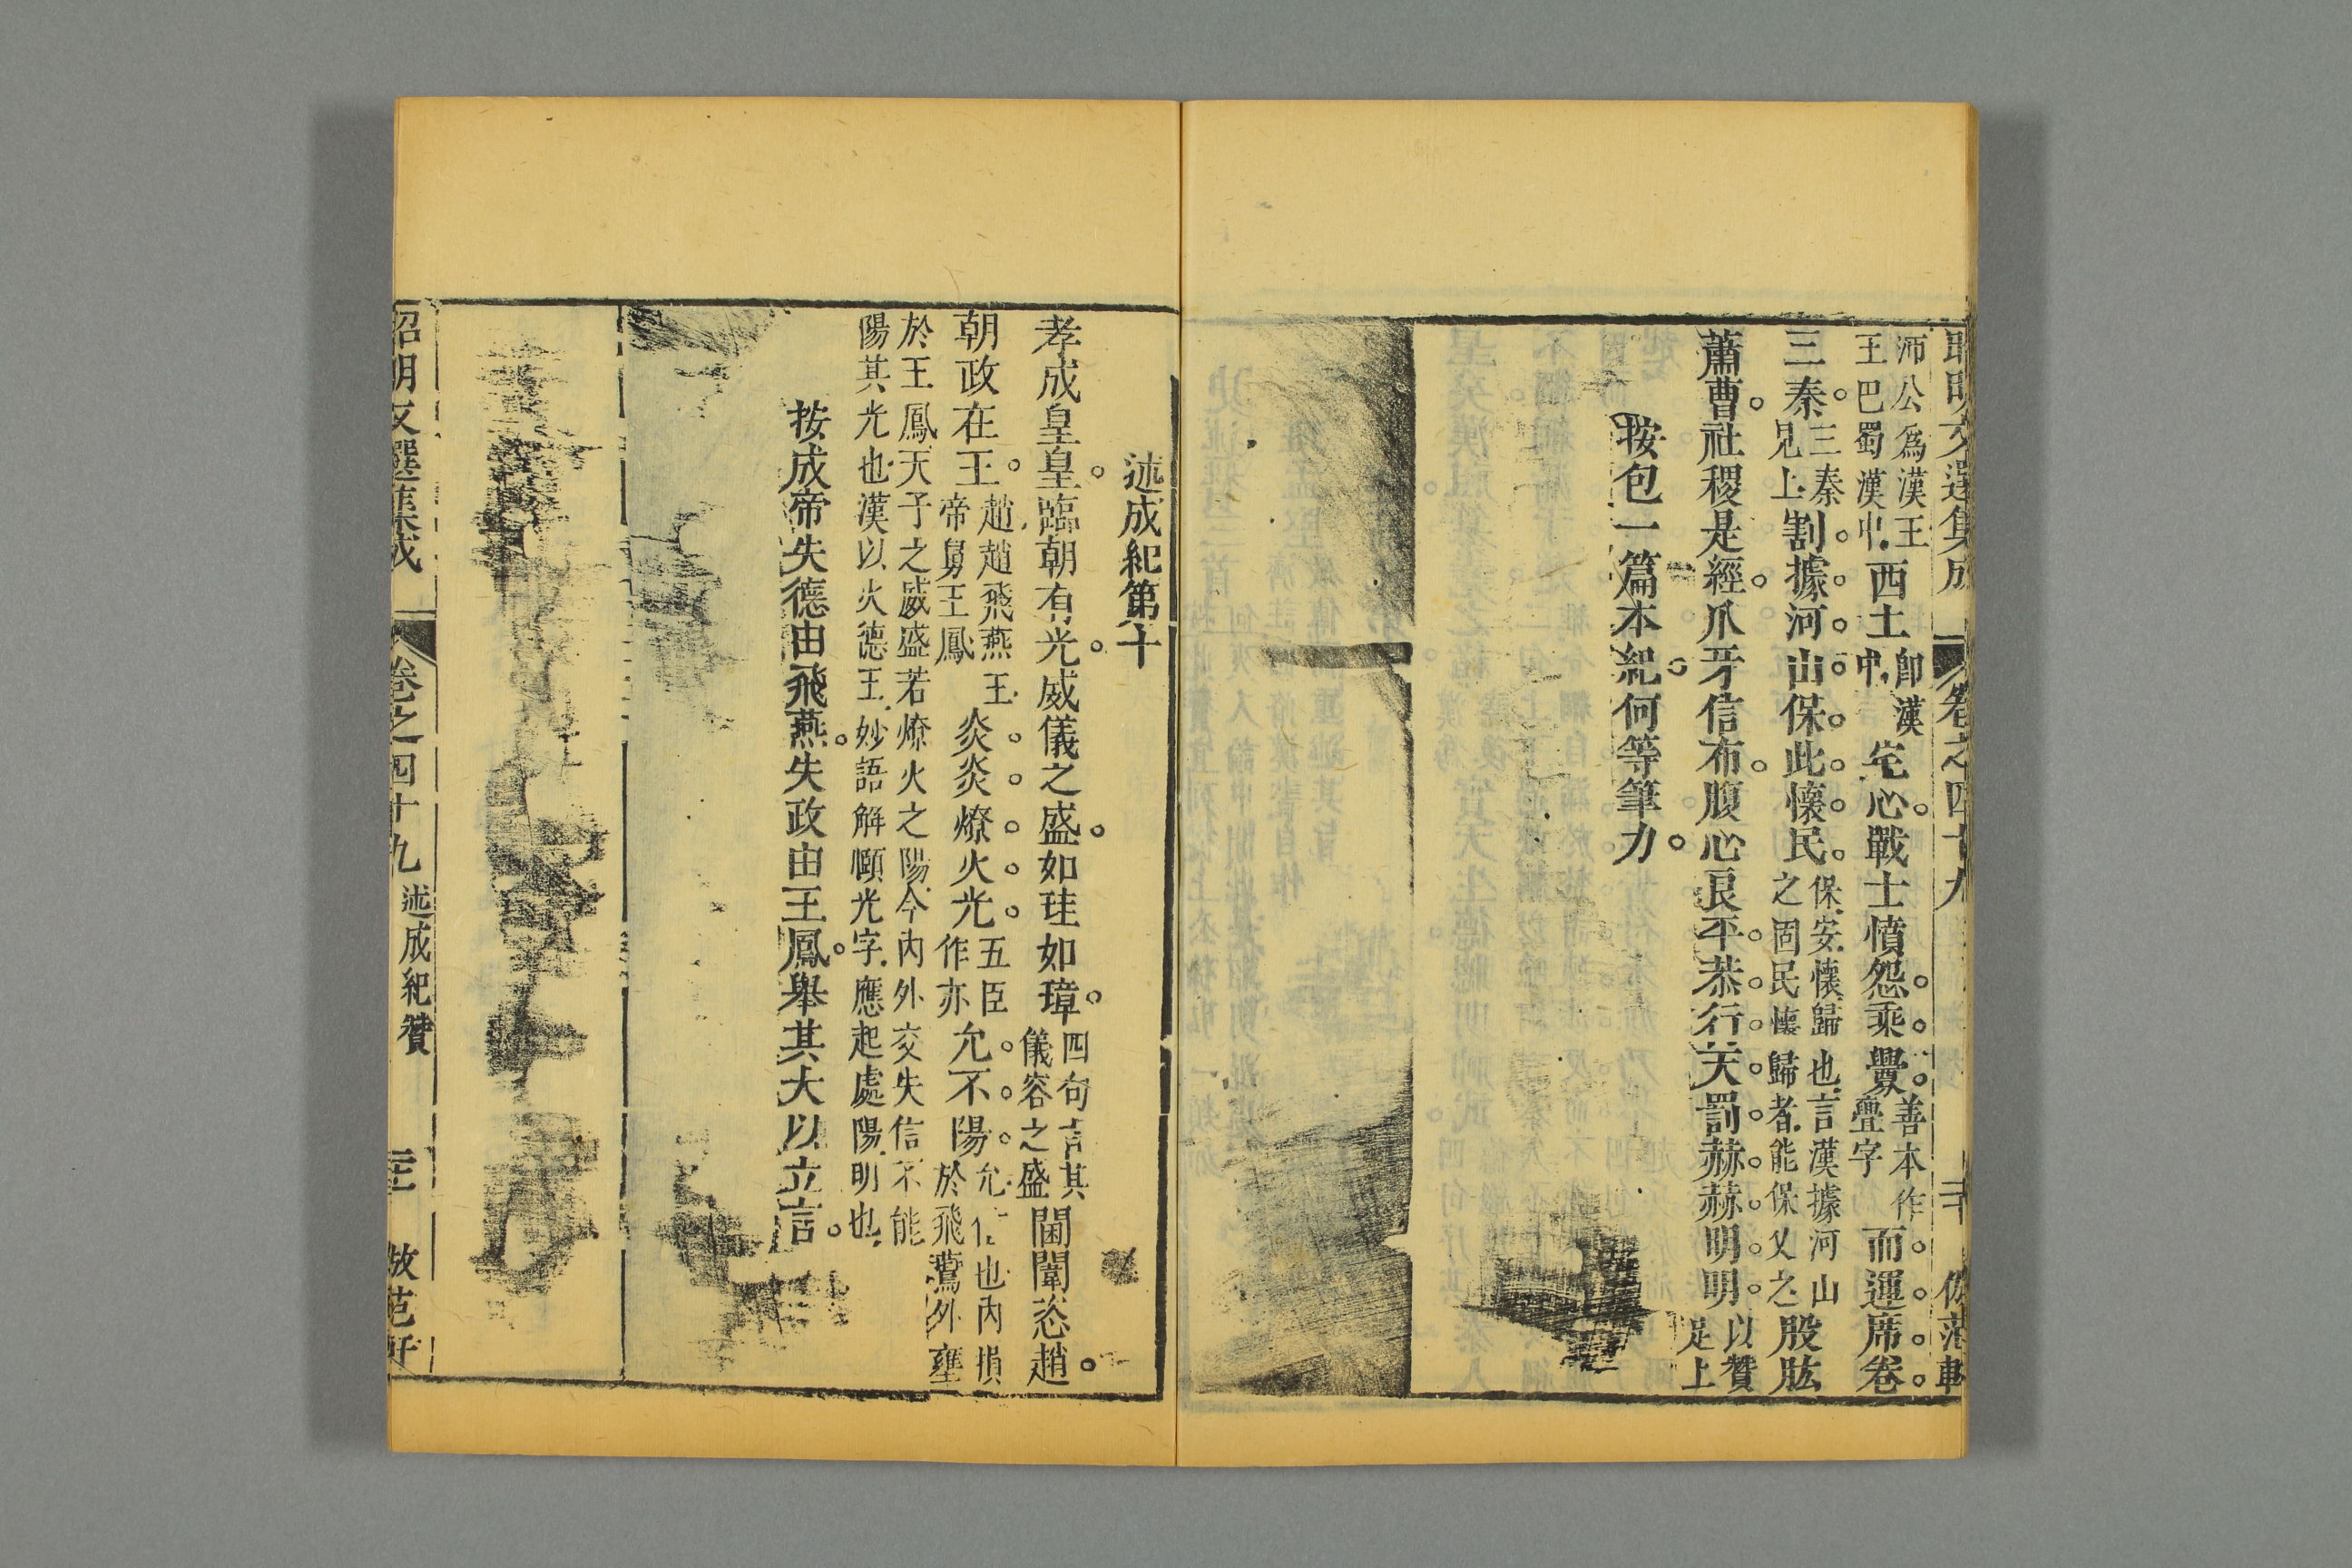 昭明文選集成 卷之四十九
沛公爲漢王王巴蜀漢中西土卽漢中宅心戰士憤怨乘釁善本作舋字而運席卷
三秦三秦見上割據河山保此懷民保安懷歸也言漢據河山之固民懷歸者能保乂之股肱
蕭曹社稷是經爪牙信布腹心良平恭行天罰赫赫明明以贊足上
按包一篇本紀何等筆力
述成紀第十
孝成皇皇臨朝有光威儀之盛如珪如璋四句言其儀容之盛閫闈恣趙
朝政在王趙趙飛燕王帝舅王鳳炎炎燎火光五臣作亦允不陽允信也內損於飛鷰外壅
於王鳳天子之威盛若燎火之陽今內外交失信不能
陽其光也漢以火德王妙語解頤光字應起處陽明也
按成帝失德由飛燕失政由王鳳舉其大以立言
昭明文選集成 卷之四十九 述成紀贊 倣范軒